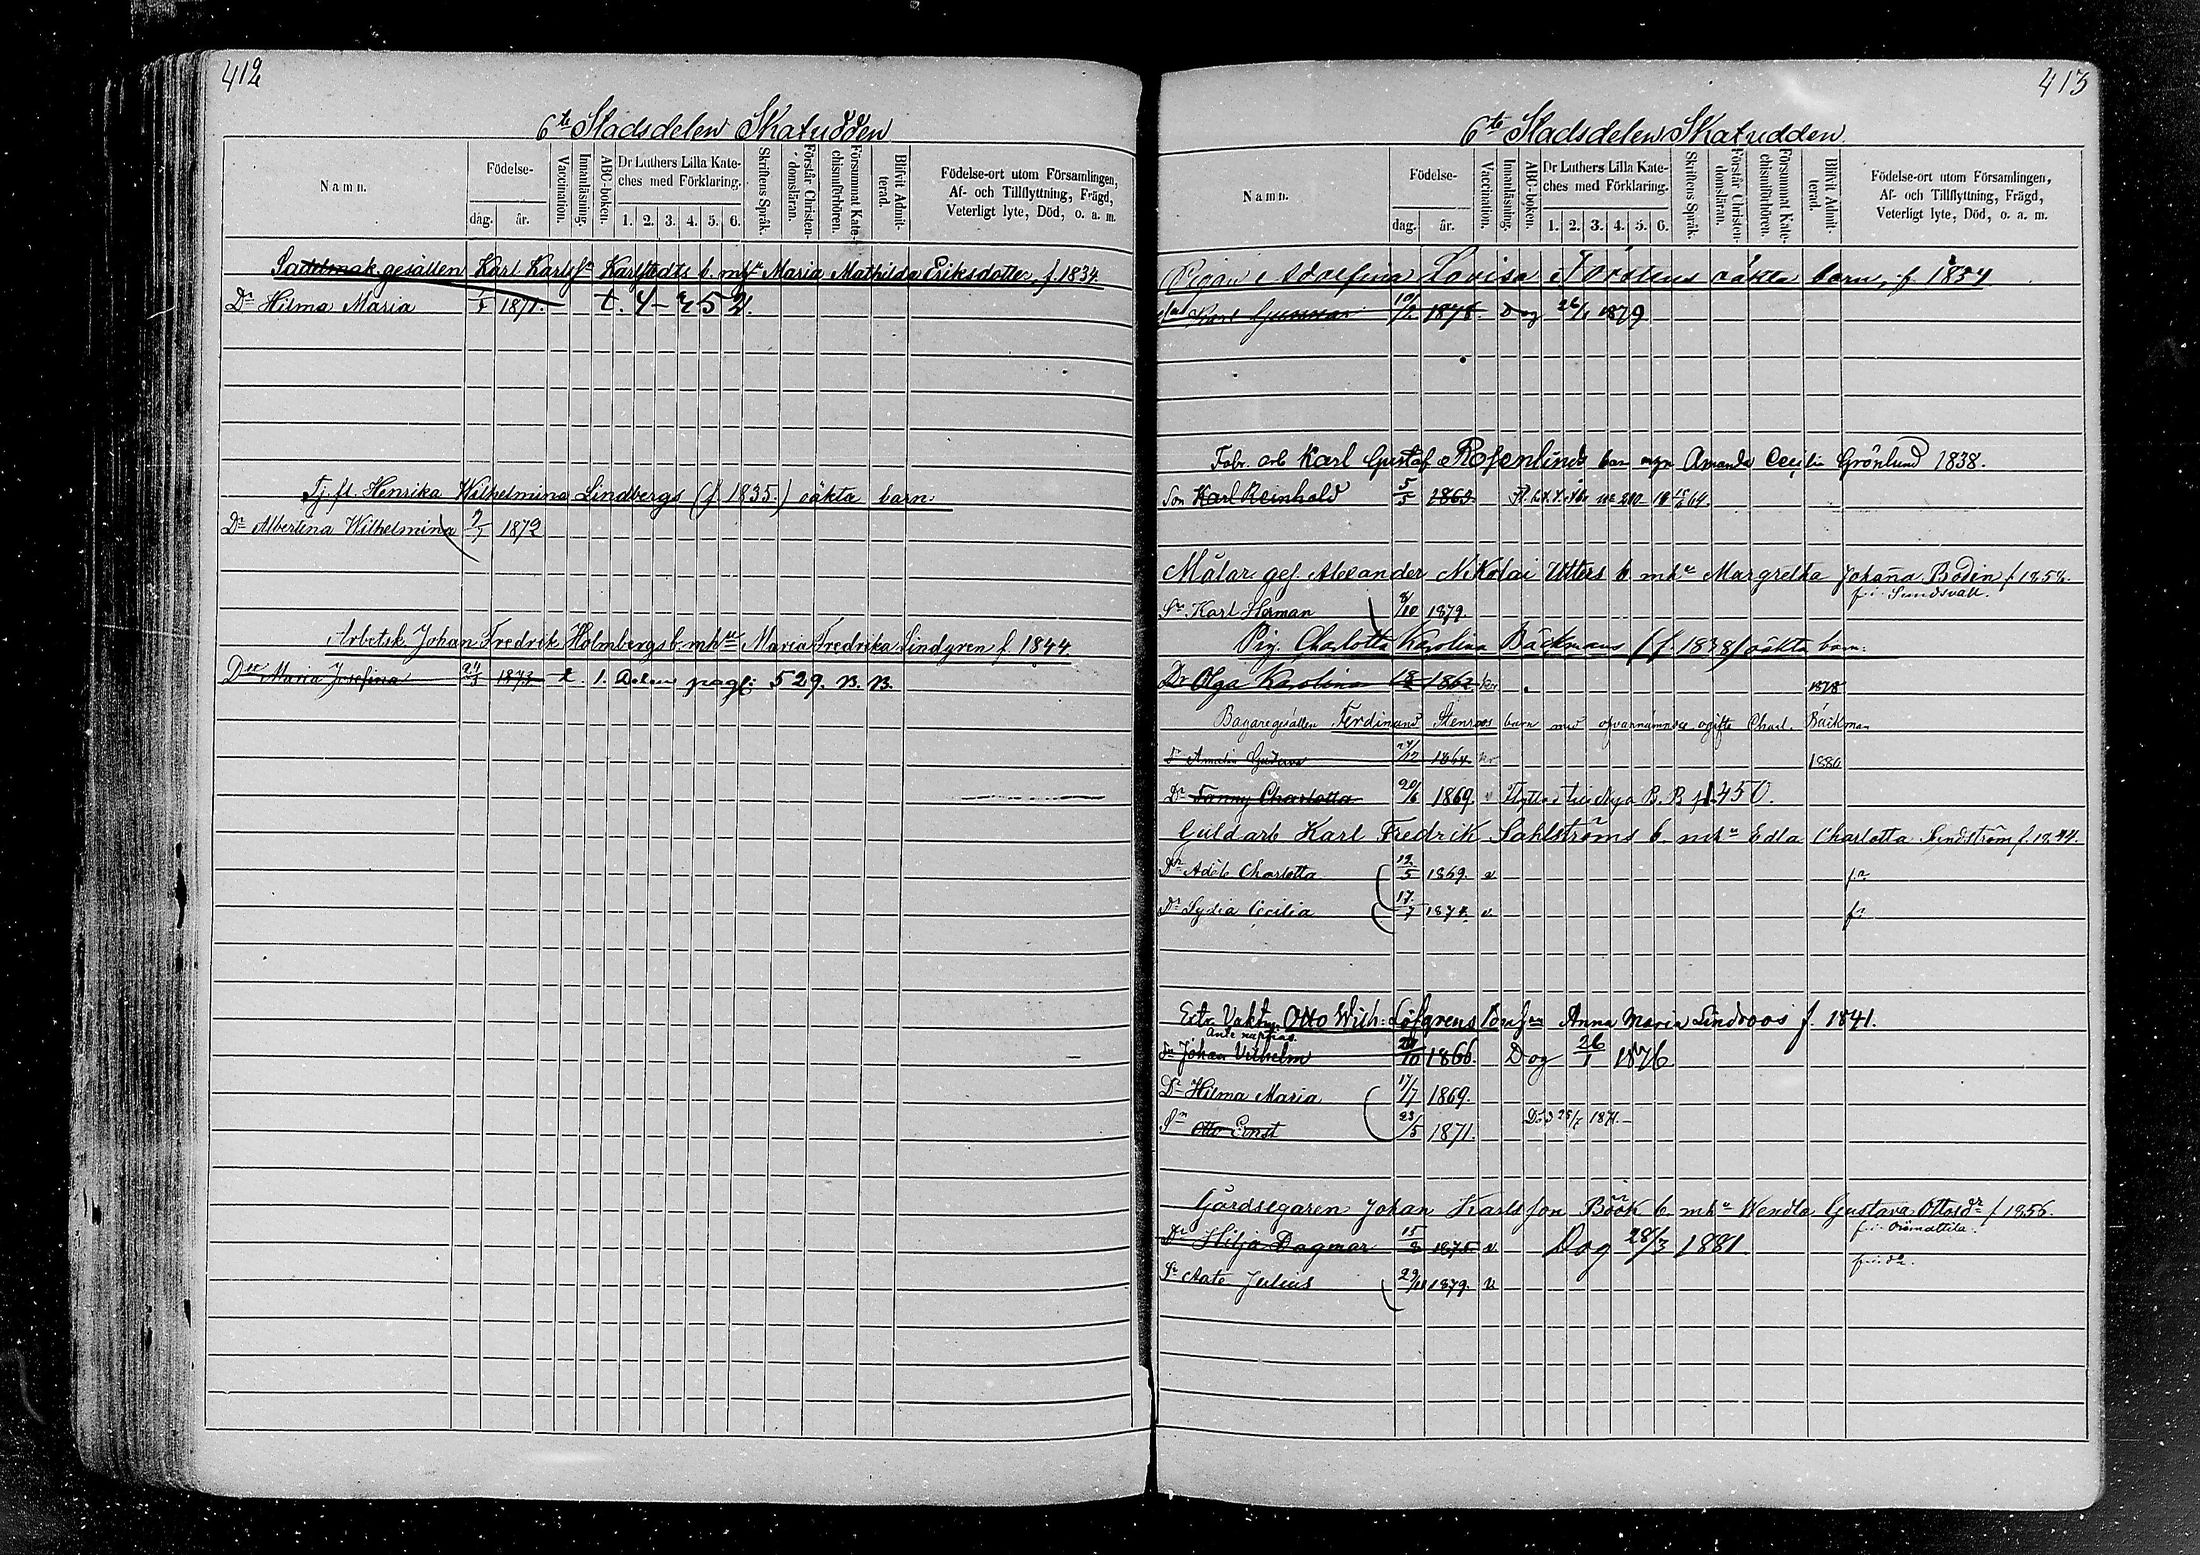 412
6te Stadsdelen Skatudden
Namn.
Födelse-
dag. år.
Vaccination.
Innanläsning.
ABC-boken.
Dr Luthers Lilla Kate-
ches med Förklaring.
1. 2. 3. 4. 5. 6.
Skriftens Språk.
Förstår Christen-
domsläran.
Försummat Kate-
chismiförhören.
Blifvit Admit-
terad.
Födelse-ort utom Församlingen,
Af- och Tillflyttning, Frägd,
Veterligt lyte, Död, o. a. m.
Sadelmak. gesällen Karl Karlssn Karlstedts b. mhu Maria Mathilda Eriksdotter, f. 1834.
Dr Hilma Maria 1871.
Tj. fl. Henrika Wilhelmina Lindbergs (f. 1835.) oäkta barn:
Dr Albertina Wilhelmina 1872
Arbetsk. Johan Fredrik Holmbergs b. mhu Maria Fredrika Lindgren f. 1844
Dtr Maria Josefina 24/3 1873 pag. 529. N. B.
413
6te Stadsdelen Skatudden.
Namn.
Födelse-
dag. år.
Vaccination.
Innanläsning.
ABC-boken.
Dr Luthers Lilla Kate-
ches med Förklaring.
1. 2. 3. 4. 5. 6.
Skriftens Språk.
Förstår Christen-
domsläran.
Försummat Kate-
chismiförhören.
Blifvit Admit-
terad.
Födelse-ort utom Församlingen,
Af- och Tillflyttning, Frägd,
Veterligt lyte, Död, o. a. m.
Pigan Adolfina Lovisa Torstens oäkta barn, f. 1834
Karl Gunnar 1878 Dog 26/1 1879
Fabr. arb Karl Gustaf Rosenlinds barn Amanda Cecilia Grönlund 1838.
Son Karl Reinhold 5/5 1863
Målar. ges. Alexander Nikolai Utters b mhu Margretha Johanna Bodin f 1858.
f. i Sundsvall.
Sn Karl Herman 8/10 1879.
Pig. Charlotta Karolina Bäckmans (f. 1838) oäkta barn:
Dr Olga Karolina 1862 1878
Bagaregesällen Ferdinand Stenroos barn med ofvannämnde ogifta Charl. Bäckman
27/12 1864 1880
Dr Fanny Charlotta 20/6 1869. v Flyttad till Nya B. B p 450.
Guldarb Karl Fredrik Sahlströms b. mhu Edla Charlotta Lindström f. 1844.
Dr Adéle Charlotta 12/5 1869. v
Dr Lydia Cecilia 17/7 1871. v.
Extr. Vaktm. Otto Wilh: Löfgrens Anna Maria Lindroos f. 1841.
Ante nuptias.
Sn Johan Vilhelm 1866. Dog 26/1 1876
Dr Hilma Maria 17/7 1869.
Sn Otto Ernst 23/5 1871. Död 25/7 1871.
Gårdsegaren Johan Karlsson Böök b. mhu Wendla Gustava Ottosdr f 1856.
f. i Orimattila.
Dr Hilja Dagmar 15/8 1875 v. Dog 28/3 1881
Sn Aate Julius 29/11 1879 v